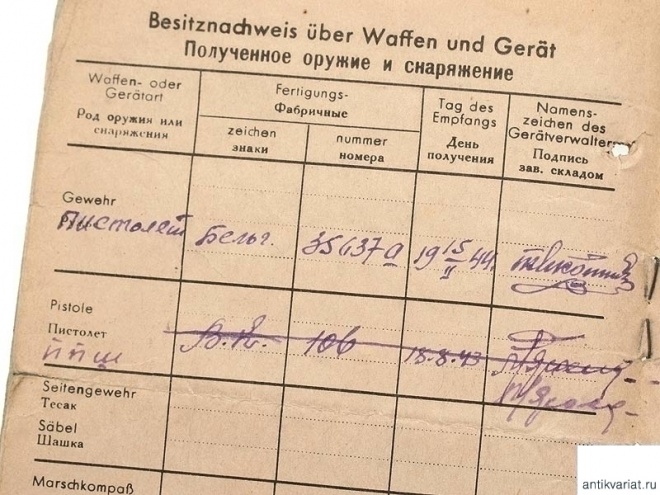 Besitznachweis über Waffen und Gerät
Полученное оружие и снаряжение
Waffen- oder
Gerätart
Род оружия или
снаряжения
Fertigungs-
Фабричные
zeichen
знаки
nummer
номера
Tag des
Empfangs
День
получения
Namens-
zeichen des
Gerätverwalters
Подпись
зав. складом
Gewehr
Пистолет Бельг. 35637а 19 15/II 44
Pistole
Пистолет
ППШ 106 18.8.43
Seitengewehr
Тесак
Säbel
Шашка
Marschkompaß
antikvariat.ru